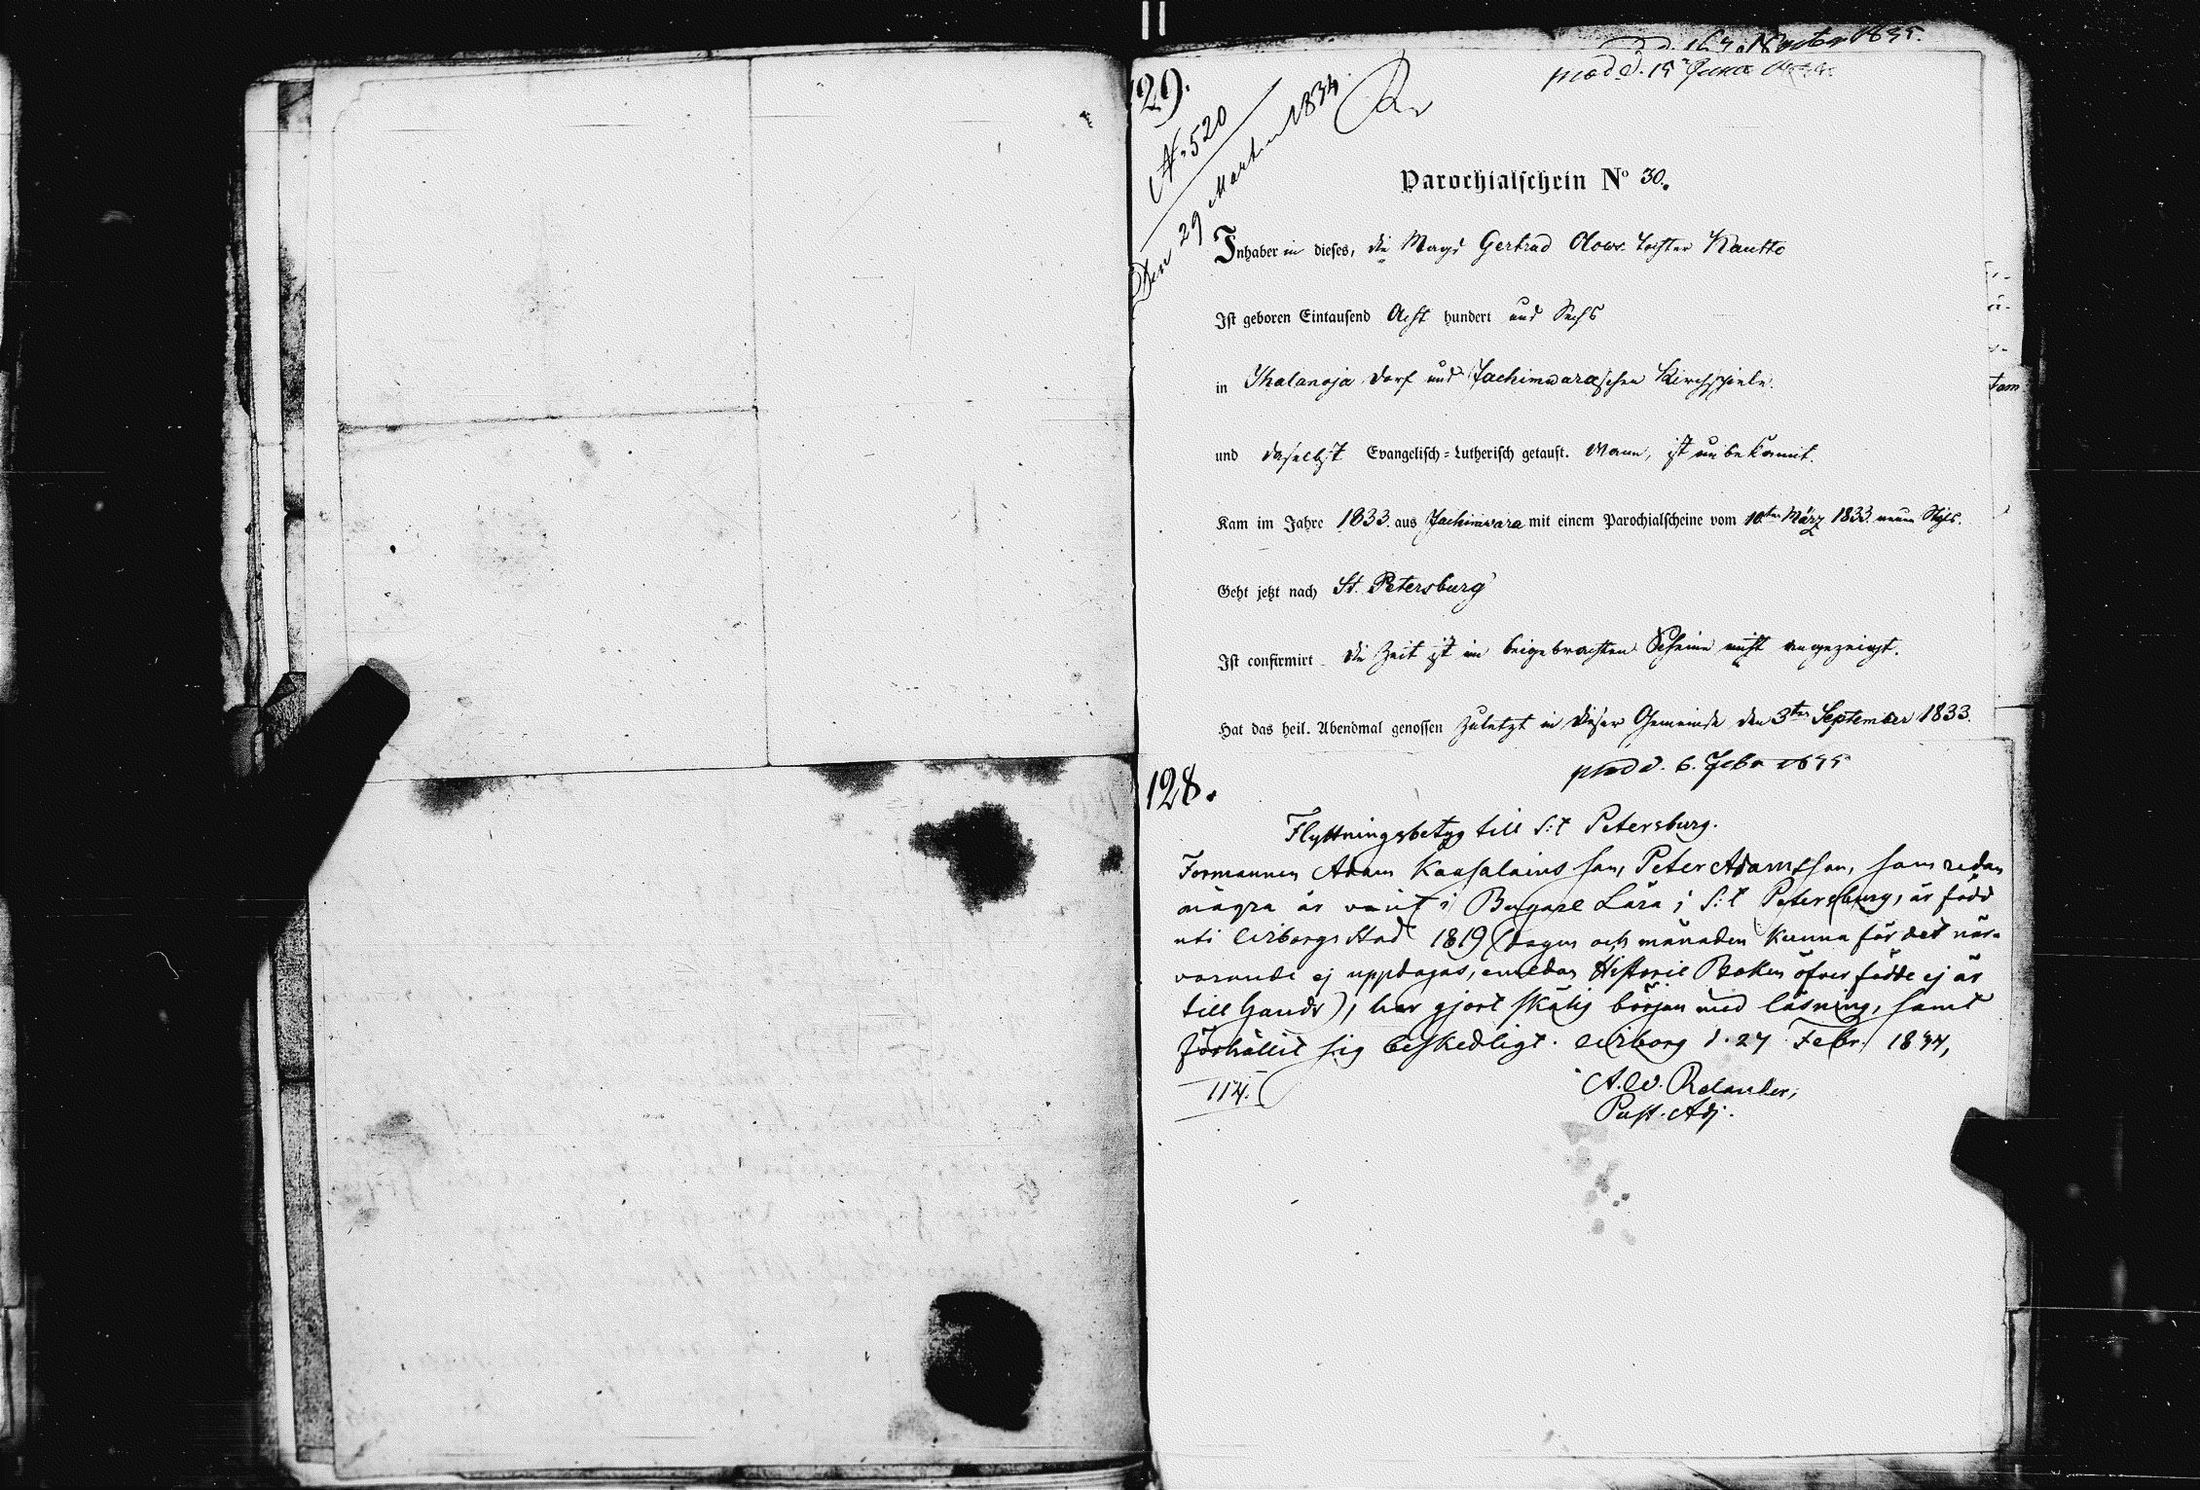 129.
N:520
Den 29 Martii 1834.
prod d. 15
Parochialschein No 30.
Inhaber in dieses, die Magd Gertrud Olows Tochter Kautto
Ist geboren Eintausend Acht hundert und Sechs
in Ihalanoja Dorf und Jachimwaraschen Kirchspiele.
und daselbst Evangelisch-Lutherisch getauft. Wann, ist unbekannt.
Kam im Jahre 1833. aus Jachimwara mit einem Parochialscheine vom 10ten März 1833. neuen Styls.
Geht jetzt nach St. Petersburg
Ist confirmirt. die Zeit ist im beigebrachten Scheine nicht angezeigt.
Hat das heil. Abendmal genossen zuletzt in dieser Gemeinde den 3ten September 1833.
prod d. 6. Feb
128.
Flyttningsbetyg till S:t Petersburg.
Formannen Adam Kaasalains son, Peter Adamsson, som redan
några år varit i Bagare Lära i S:t Petersburg, är född
uti Wiborgs Stad 1819 (dagen och månaden kunna för det när-
varande ej uppdagas, emedan Historie Boken öfver födde ej är
till hands), har gjort skälig början med läsning, samt
förhållit sig beskedligt. Wiborg d. 27 Febr. 1834,
114.
A. W. Relander,
Past. Adj.